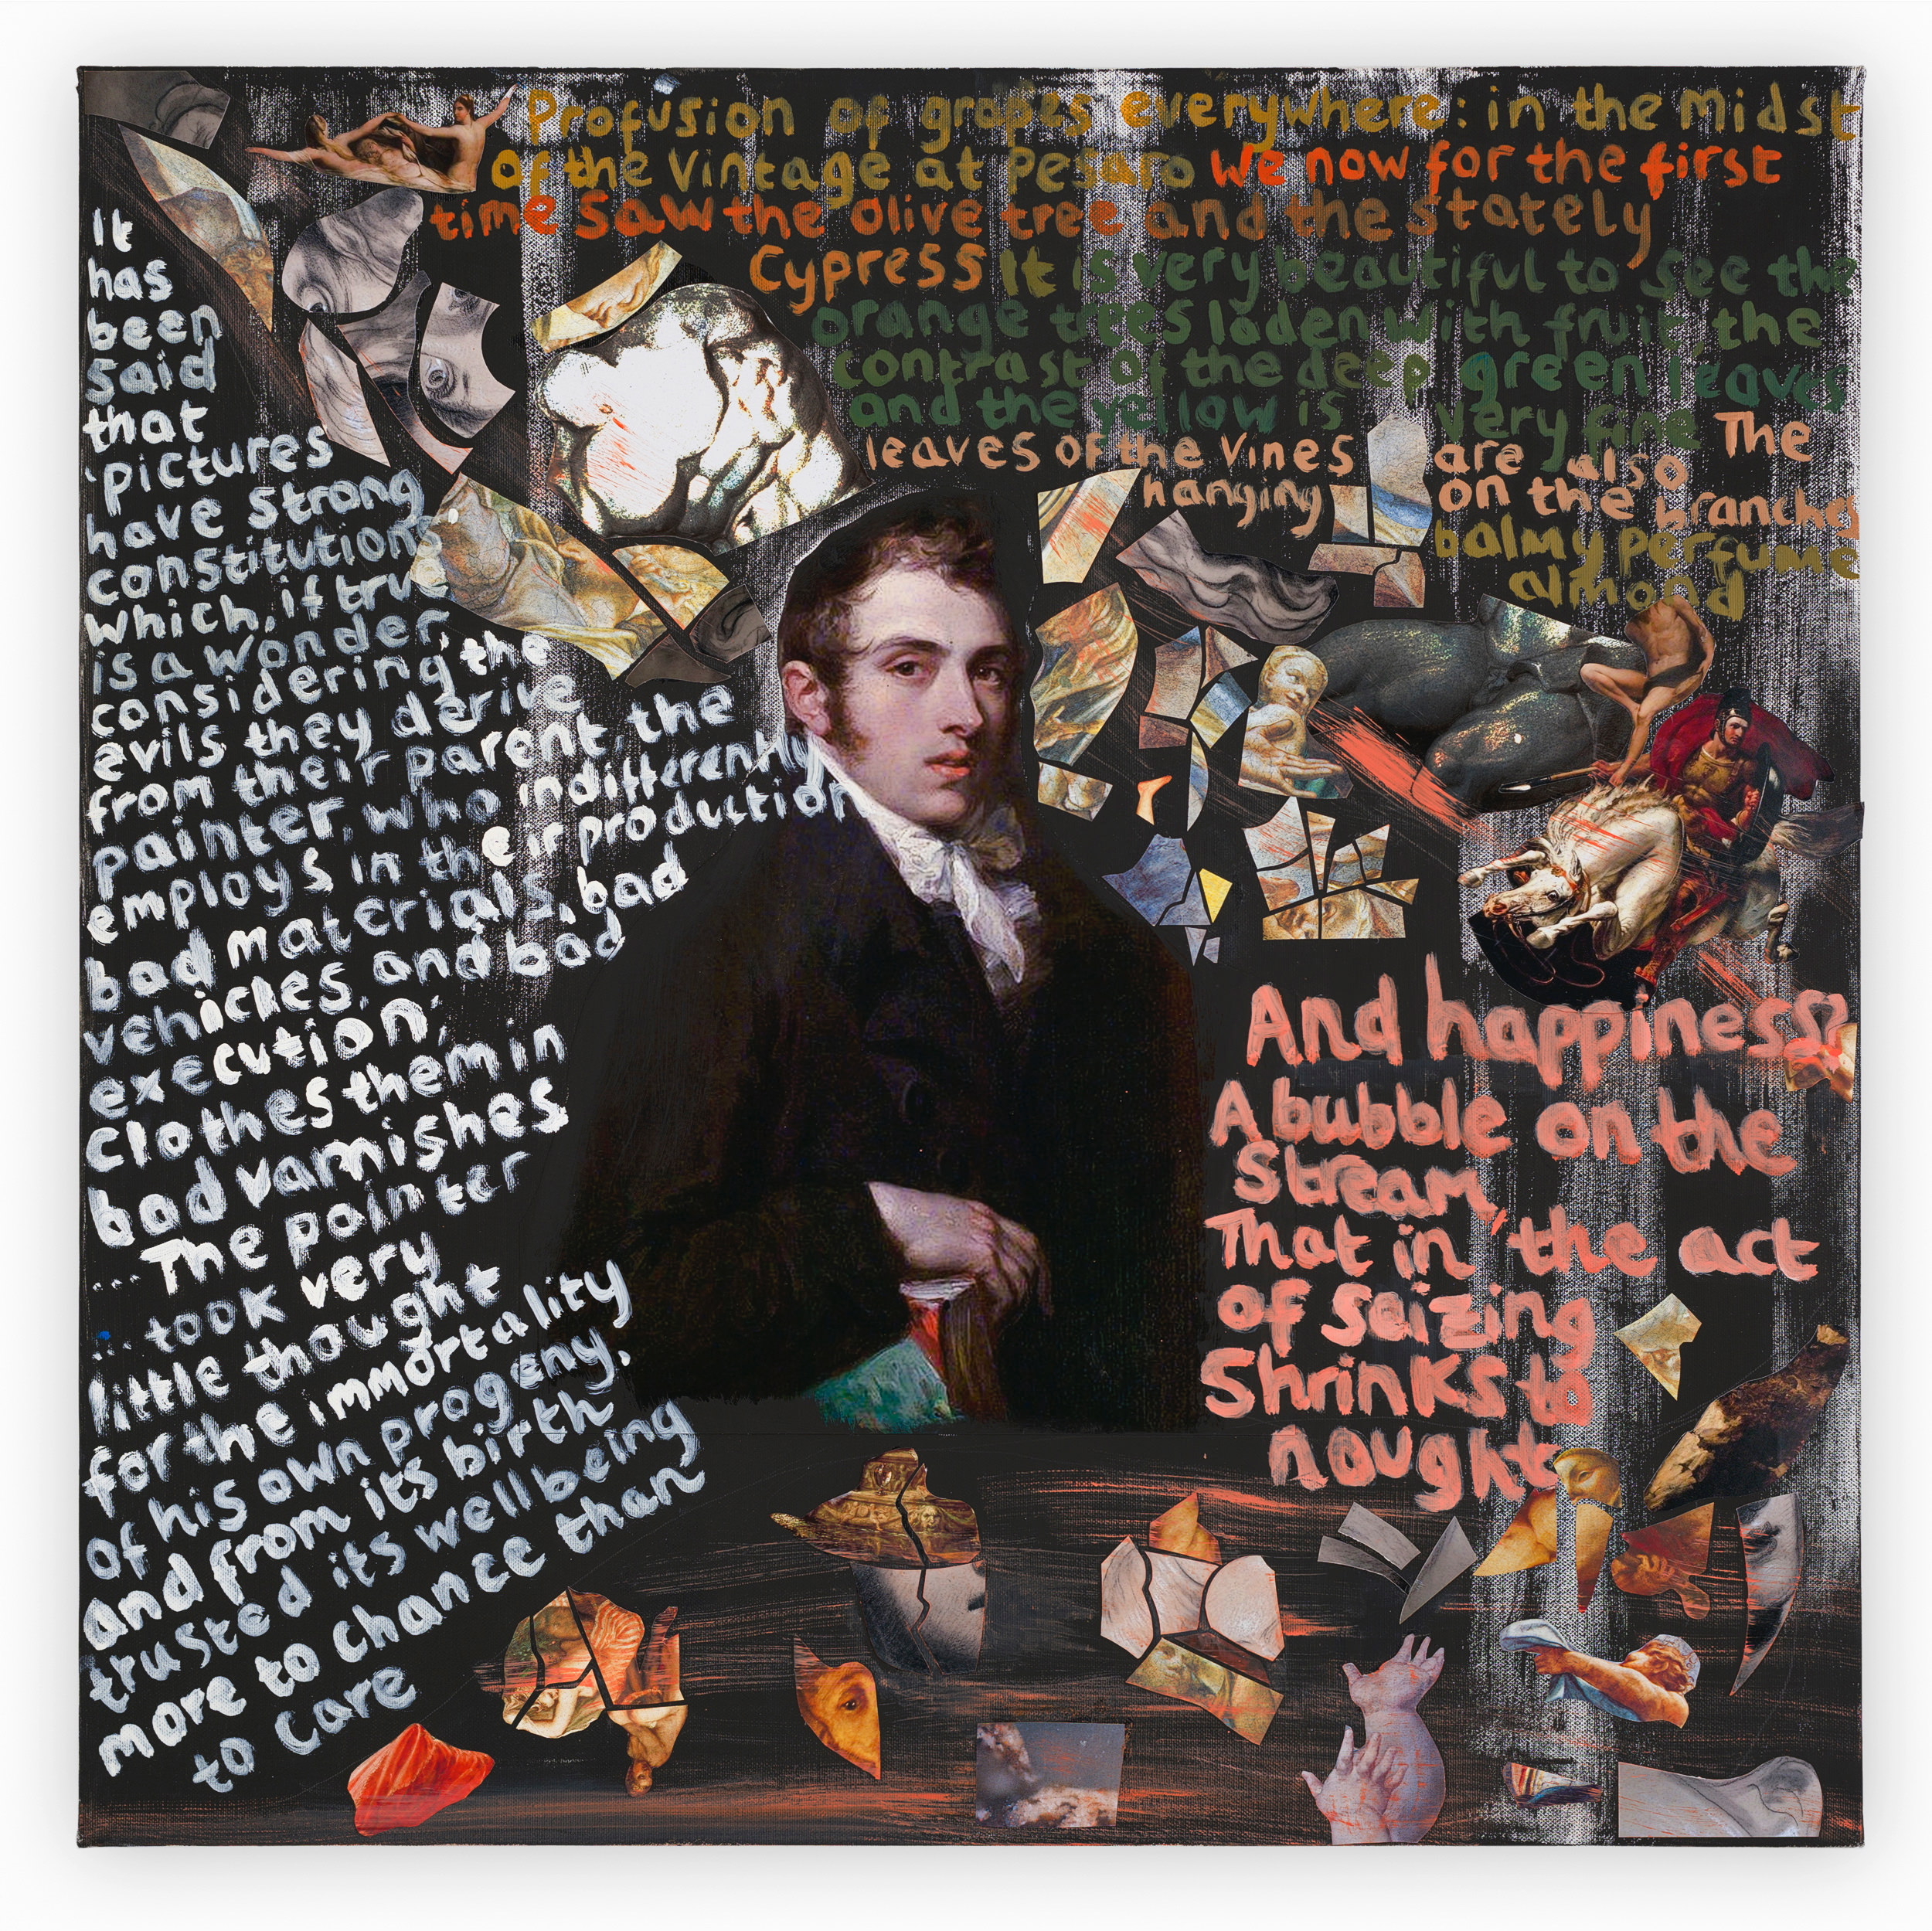 Profusion of grapes everywhere: in the midst
of the vintage at Pesaro We now for the first
time saw the olive tree and the stately
Cypress It is very beautiful to see the
orange trees laden with fruit, the
contrast of the deep green leaves
and the yellow is very fine The
leaves of the vines are also
hanging on the branches
balmy perfume
almond
It
has
been
said
that
'pictures
have strong
constitutions
which, if true
is a wonder,
considering the
evils they derive
from their parent, the
painter, who indifferently
employs in their production
bad materials, bad
vehicles, and bad
execution;
clothes them in
bad varnishes
... The painter
... took very
little thought
for the immortality
of his own progeny,
and from its birth
trusted its wellbeing
more to chance than
to care
And happiness?
A bubble on the
Stream,
That in the act
of seizing
Shrinks to
nought